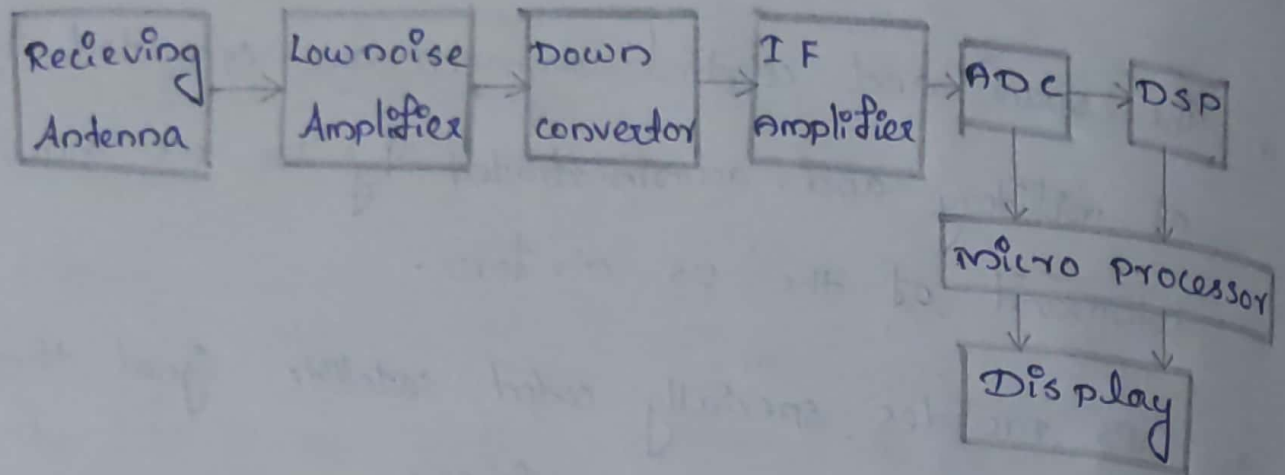 Recieving
Antenna
Low noise
Amplifier
Down
convertor
IF
Amplifier
ADC
DSP
Micro processor
Display